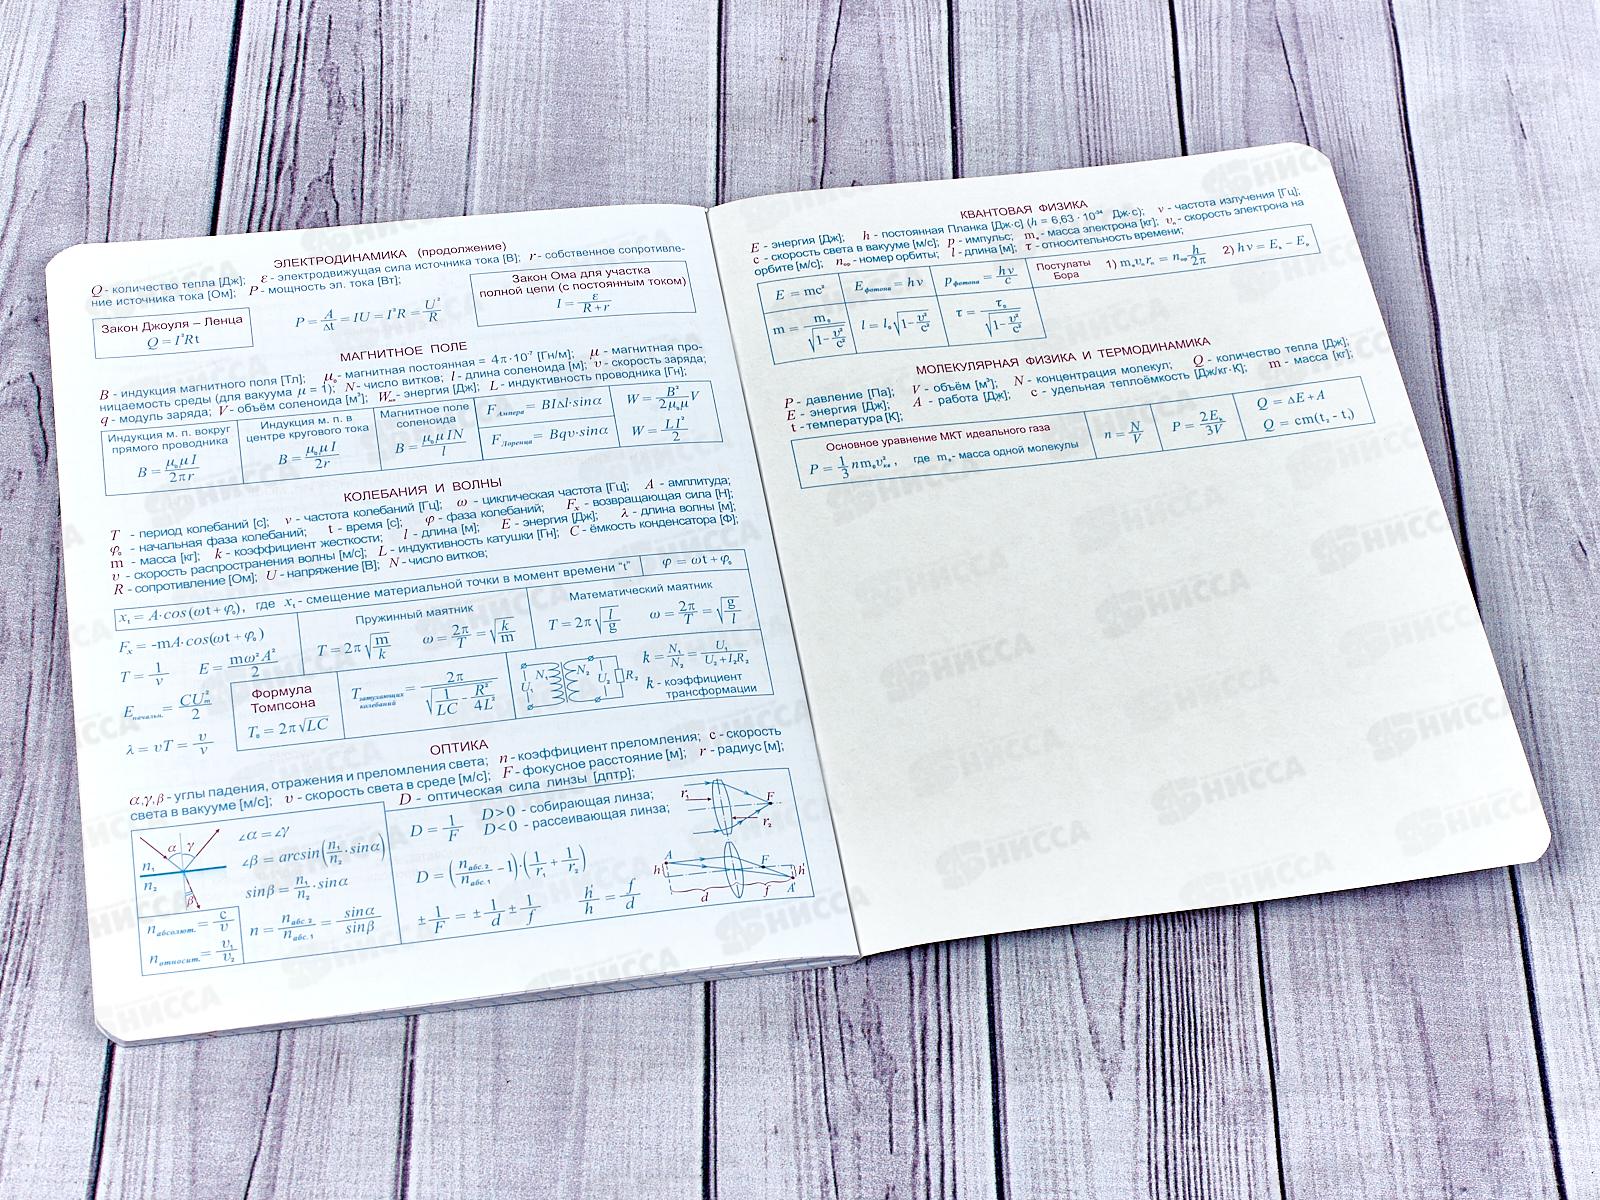 ЭЛЕКТРОДИНАМИКА (продолжение)
Q - количество тепла [Дж]; ε - электродвижущая сила источника тока [В]; r - собственное сопротивле-
ние источника тока [Ом]; P - мощность эл. тока [Вт];
Закон Джоуля – Ленца
Q = I²Rt
P = A/Δt = IU = I²R = U²/R
Закон Ома для участка
полной цепи (с постоянным током)
I = ε/(R+r)
МАГНИТНОЕ ПОЛЕ
B - индукция магнитного поля [Тл]; μ₀ - магнитная постоянная = 4π·10⁻⁷ [Гн/м]; μ - магнитная про-
ницаемость среды (для вакуума μ = 1); N - число витков; l - длина соленоида [м]; υ - скорость заряда;
q - модуль заряда; V - объём соленоида [м³]; Wₘ - энергия [Дж]; L - индуктивность проводника [Гн];
Индукция м. п. вокруг
прямого проводника
B = μ₀μI/2πr
Индукция м. п. в
центре кругового тока
B = μ₀μI/2r
Магнитное поле
соленоида
B = μ₀μIN/l
F Ампера = BIΔl·sinα
F Лоренца = Bqυ·sinα
W = B²/2μ₀μ V
W = LI²/2
КОЛЕБАНИЯ И ВОЛНЫ
T - период колебаний [с]; ν - частота колебаний [Гц]; ω - циклическая частота [Гц]; A - амплитуда;
φ₀ - начальная фаза колебаний; t - время [с]; φ - фаза колебаний; Fₓ - возвращающая сила [Н];
m - масса [кг]; k - коэффициент жесткости; l - длина [м]; E - энергия [Дж]; λ - длина волны [м];
υ - скорость распространения волны [м/с]; L - индуктивность катушки [Гн]; C - ёмкость конденсатора [Ф];
R - сопротивление [Ом]; U - напряжение [В]; N - число витков;
xₜ = A·cos(ωt + φ₀), где xₜ - смещение материальной точки в момент времени "t"
φ = ωt + φ₀
Fₓ = -mA·cos(ωt + φ₀)
T = 1/ν E = mω²A²/2
E начальн. = CUₘ²/2
λ = υT = υ/ν
Пружинный маятник
T = 2π√(m/k) ω = 2π/T = √(k/m)
Математический маятник
T = 2π√(l/g) ω = 2π/T = √(g/l)
Формула
Томпсона
T₀ = 2π√LC
T затухающих колебаний = 2π/√(1/LC - R²/4L²)
U₁ N₁ N₂ U₂ R₂
k = N₁/N₂ = U₁/(U₂ + I₂R₂)
k - коэффициент
трансформации
ОПТИКА
α,γ,β - углы падения, отражения и преломления света; n - коэффициент преломления; c - скорость
света в вакууме [м/с]; υ - скорость света в среде [м/с]; F - фокусное расстояние [м]; r - радиус [м];
D - оптическая сила линзы [дптр];
α γ
n₁
n₂
β
∠α = ∠γ
∠β = arcsin(n₁/n₂·sinα)
sinβ = n₁/n₂·sinα
n абсолют. = c/υ
n относит. = υ₁/υ₂
n = n абс.2/n абс.1 = sinα/sinβ
D = 1/F
D>0 - собирающая линза;
D<0 - рассеивающая линза;
D = (n абс.2/n абс.1 - 1)·(1/r₁ + 1/r₂)
± 1/F = ± 1/d ± 1/f
h'/h = f/d
r₁ F r₂
A h F h' A' d f
КВАНТОВАЯ ФИЗИКА
E - энергия [Дж]; h - постоянная Планка [Дж·с] (h = 6,63 · 10⁻³⁴ Дж·с); ν - частота излучения [Гц];
c - скорость света в вакууме [м/с]; p - импульс; mₑ - масса электрона [кг]; υₙ - скорость электрона на
орбите [м/с]; n - номер орбиты; l - длина [м]; τ - относительность времени;
E = mc²
E фотона = hν
p фотона = hν/c
Постулаты
Бора
1) mₑυₙrₙ = n h/2π
2) hν = Eₖ - Eₙ
m = m₀/√(1-υ²/c²)
l = l₀√(1-υ²/c²)
τ = τ₀/√(1-υ²/c²)
МОЛЕКУЛЯРНАЯ ФИЗИКА И ТЕРМОДИНАМИКА
P - давление [Па]; V - объём [м³]; N - концентрация молекул; Q - количество тепла [Дж];
E - энергия [Дж]; A - работа [Дж]; c - удельная теплоёмкость [Дж/кг·К]; m - масса [кг];
t - температура [К];
Основное уравнение МКТ идеального газа
P = 1/3 nm₀υ²кв, где m₀ - масса одной молекулы
n = N/V
P = 2Eₖ/3V
Q = ΔE + A
Q = cm(t₂ - t₁)
НИССА